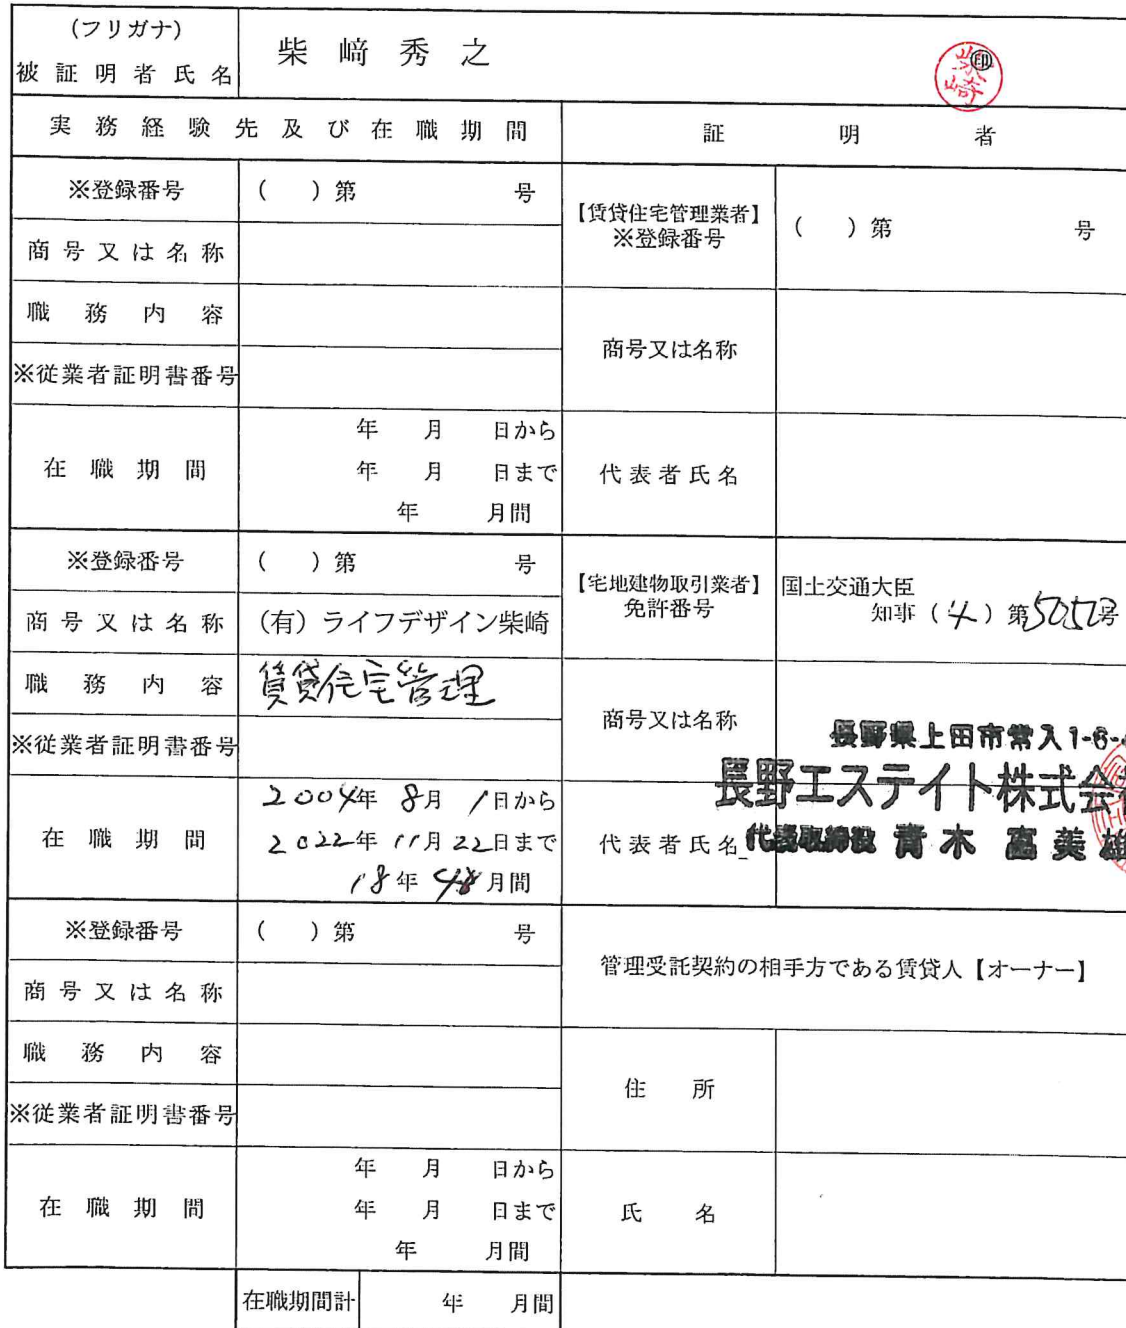 (フリガナ)
被証明者氏名
柴﨑秀之
㊞
柴崎
実務経験先及び在職期間
証明者
※登録番号
( )第 号
商号又は名称
職務内容
※従業者証明書番号
在職期間
年 月 日から
年 月 日まで
年 月間
【賃貸住宅管理業者】
※登録番号
( )第 号
商号又は名称
代表者氏名
※登録番号
( )第 号
商号又は名称
(有)ライフデザイン柴崎
職務内容
賃貸住宅管理
※従業者証明書番号
在職期間
2004年 8月 1日から
2022年 11月 22日まで
18年 月間
【宅地建物取引業者】
免許番号
国土交通大臣
知事(4)第5052号
商号又は名称
長野県上田市常入1-6-
長野エステイト株式会社
代表者氏名
代表取締役 青木 富美雄
※登録番号
( )第 号
商号又は名称
職務内容
※従業者証明書番号
在職期間
年 月 日から
年 月 日まで
年 月間
管理受託契約の相手方である賃貸人【オーナー】
住所
氏名
在職期間計
年 月間